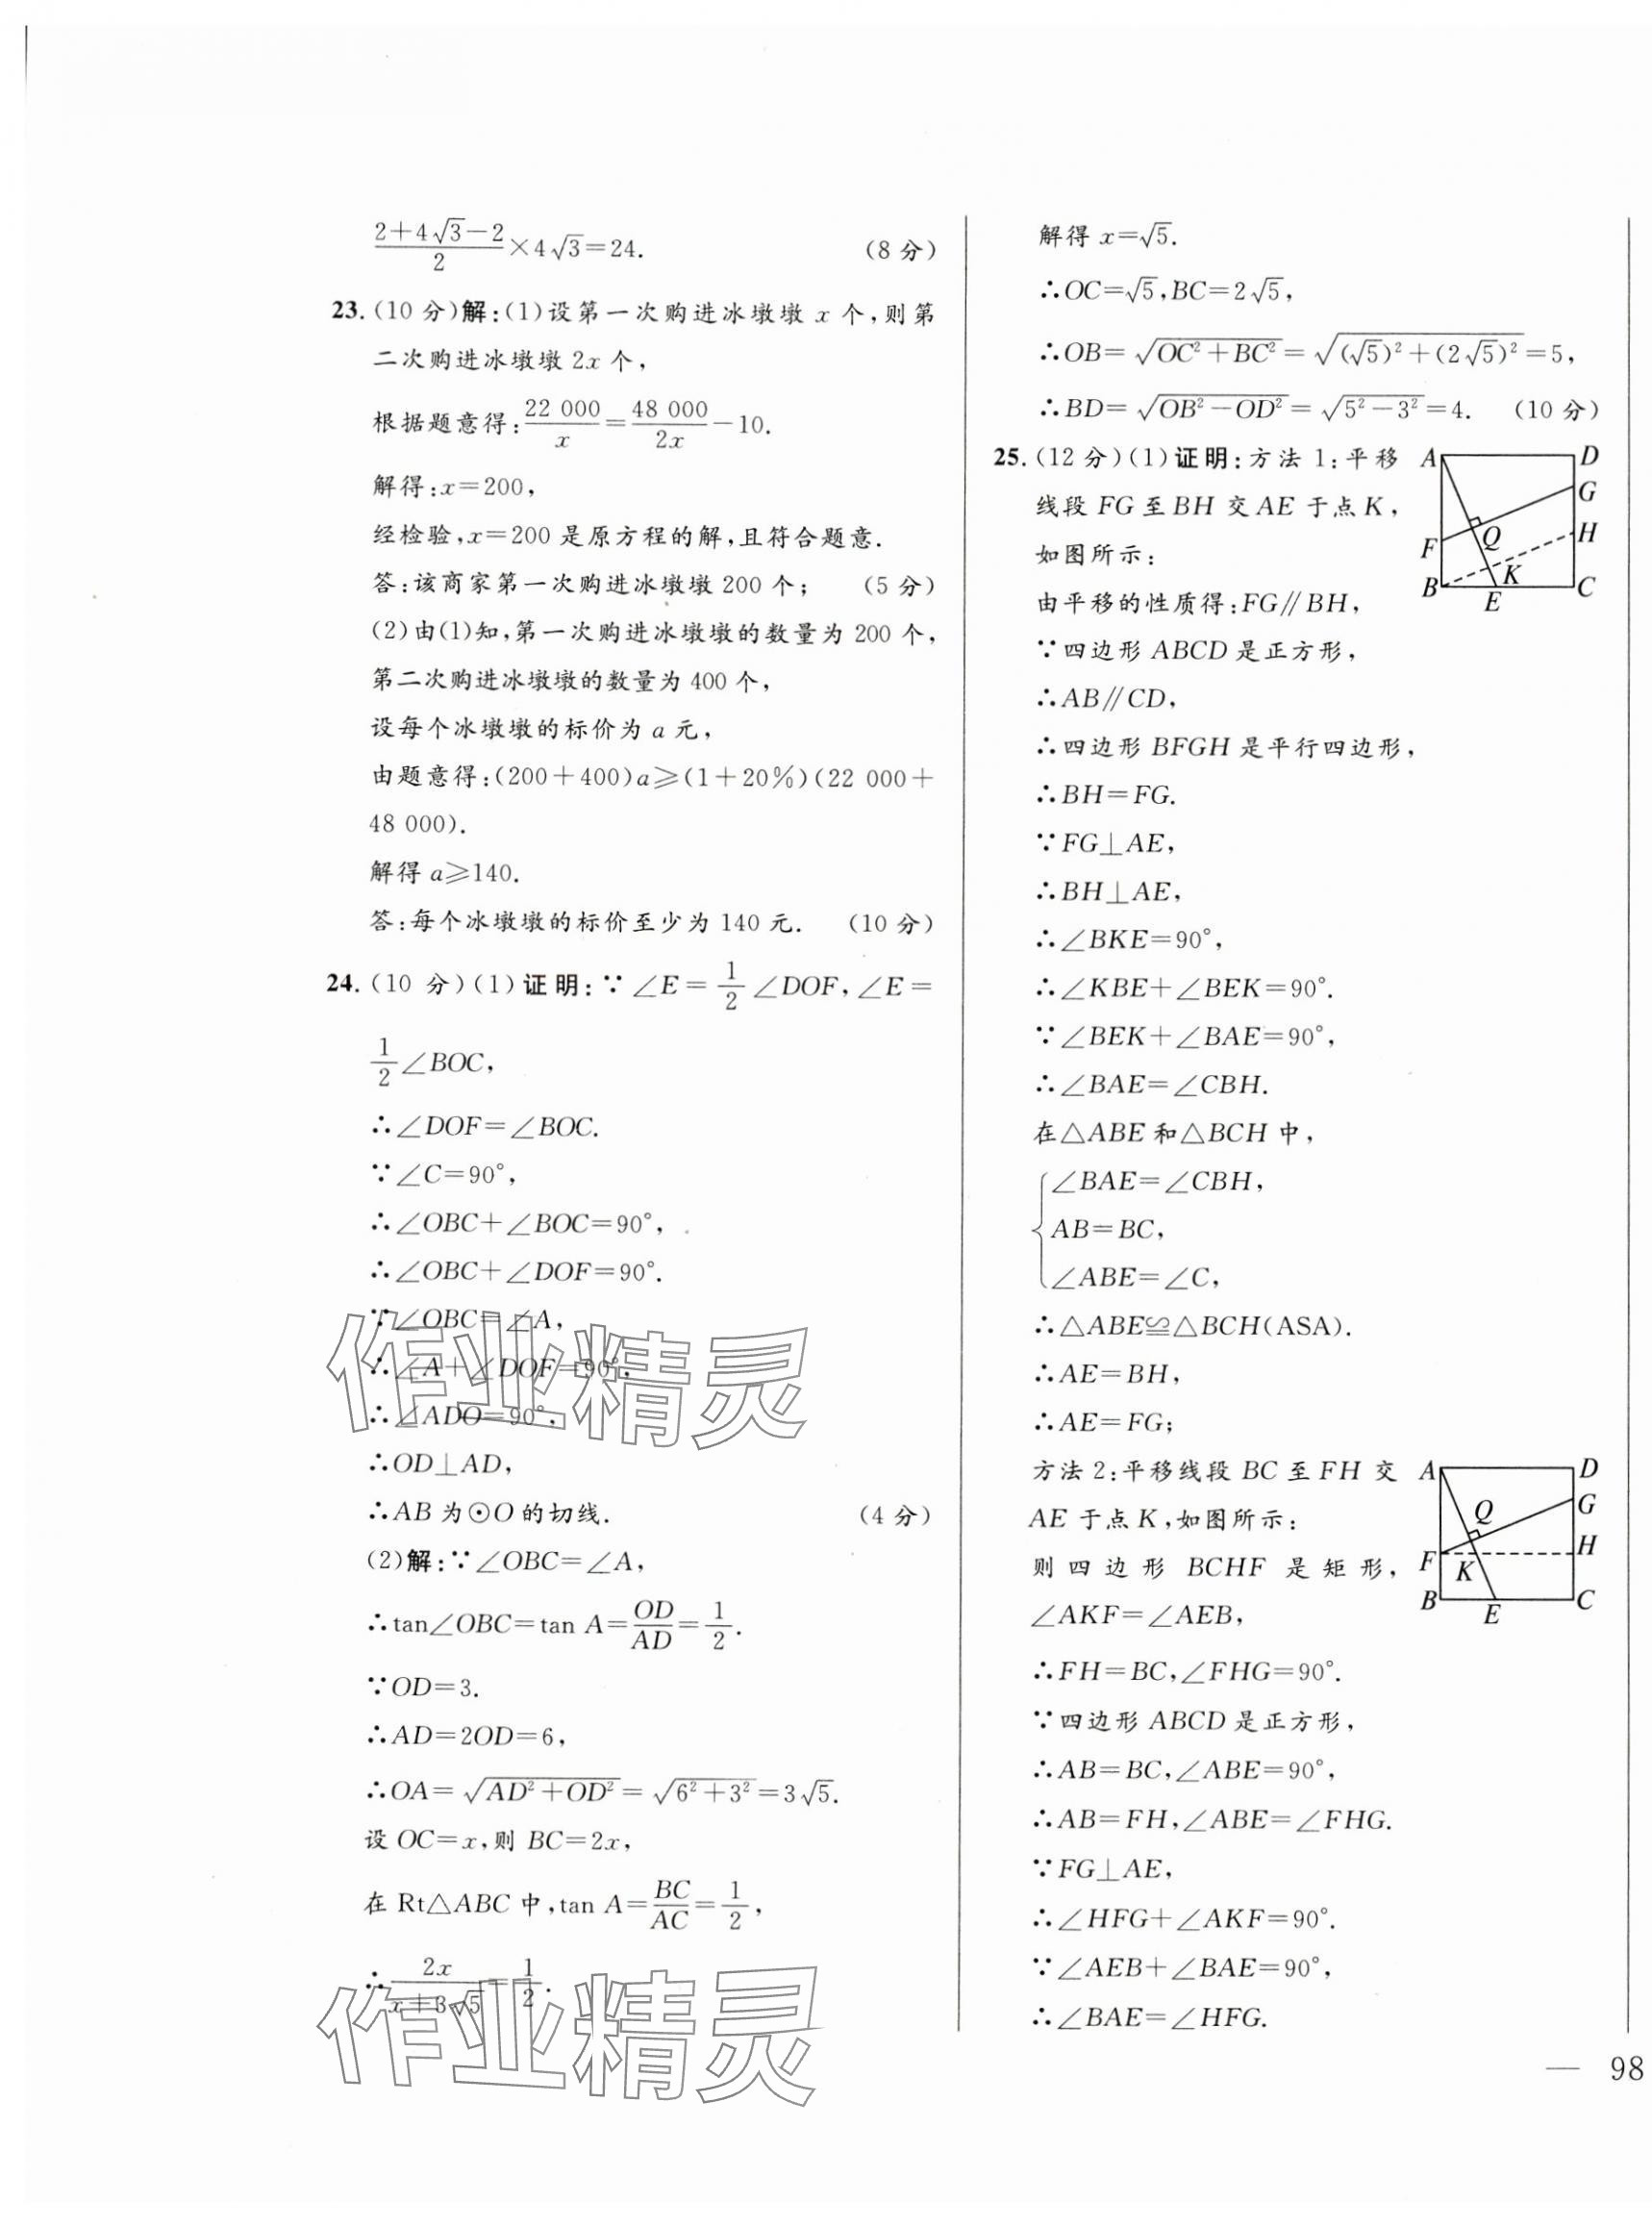 2+4√3−2/2×4√3=24. (8分)
23.(10分)解:(1)设第一次购进冰墩墩 x 个,则第
二次购进冰墩墩 2x 个,
根据题意得:22 000/x=48 000/2x−10.
解得:x=200,
经检验,x=200 是原方程的解,且符合题意.
答:该商家第一次购进冰墩墩 200 个; (5分)
(2)由(1)知,第一次购进冰墩墩的数量为 200 个,
第二次购进冰墩墩的数量为 400 个,
设每个冰墩墩的标价为 a 元,
由题意得:(200+400)a⩾(1+20%)(22 000+
48 000).
解得 a⩾140.
答:每个冰墩墩的标价至少为 140 元. (10分)
24.(10分)(1)证明:∵∠E=1/2∠DOF,∠E=
1/2∠BOC,
∴∠DOF=∠BOC.
∵∠C=90°,
∴∠OBC+∠BOC=90°,
∴∠OBC+∠DOF=90°.
∵∠OBC=∠A,
∴∠A+∠DOF=90°,
∴∠ADO=90°,
∴OD⊥AD,
∴AB 为⊙O 的切线. (4分)
(2)解:∵∠OBC=∠A,
∴tan∠OBC=tan A=OD/AD=1/2.
∵OD=3.
∴AD=2OD=6,
∴OA=√(AD²+OD²)=√(6²+3²)=3√5.
设 OC=x,则 BC=2x,
在 Rt△ABC 中,tan A=BC/AC=1/2,
∴2x/(x+3√5)=1/2.
作业精灵
作业精灵
解得 x=√5.
∴OC=√5,BC=2√5,
∴OB=√(OC²+BC²)=√((√5)²+(2√5)²)=5,
∴BD=√(OB²−OD²)=√(5²−3²)=4. (10分)
25.(12分)(1)证明:方法 1:平移
线段 FG 至 BH 交 AE 于点 K,
如图所示:
A D G Q H F K B E C
由平移的性质得:FG∥BH,
∵四边形 ABCD 是正方形,
∴AB∥CD,
∴四边形 BFGH 是平行四边形,
∴BH=FG.
∵FG⊥AE,
∴BH⊥AE,
∴∠BKE=90°,
∴∠KBE+∠BEK=90°.
∵∠BEK+∠BAE=90°,
∴∠BAE=∠CBH.
在△ABE 和△BCH 中,
∠BAE=∠CBH,
AB=BC,
∠ABE=∠C,
∴△ABE≌△BCH(ASA).
∴AE=BH,
∴AE=FG;
方法 2:平移线段 BC 至 FH 交
AE 于点 K,如图所示:
A D G Q H F K B E C
则四边形 BCHF 是矩形,
∠AKF=∠AEB,
∴FH=BC,∠FHG=90°.
∵四边形 ABCD 是正方形,
∴AB=BC,∠ABE=90°,
∴AB=FH,∠ABE=∠FHG.
∵FG⊥AE,
∴∠HFG+∠AKF=90°.
∵∠AEB+∠BAE=90°,
∴∠BAE=∠HFG.
— 98